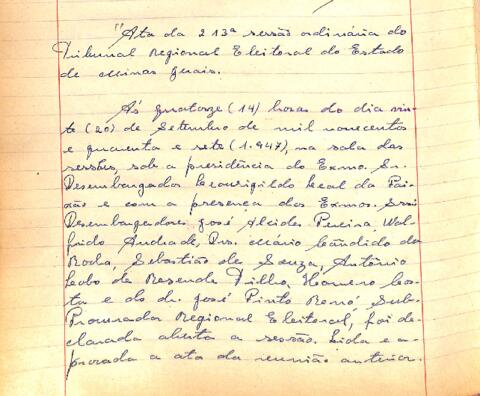 "Ata da 213ª sessão ordinária do
Tribunal Regional Eleitoral do Estado
de Minas Gerais.
Ás quatorze (14) horas do dia vin-
te (20) de Setembro de mil novecentos
e quarenta e sete (1.947), na sala das
sessões, sob a presidência do Exmo. Sr.
Desembargador Leovigildo Leal da Pai-
xão e com a presença dos Exmos. Srs.
Desembargadores José Alcides Pereira, Wal-
frido Andrade, Drs. Mário Cândido da
Rocha, Sebastião de Souza, Antônio
Lobo de Resende Filho, Homero Cos-
ta e do dr. José Pinto Renó, Sub-
Procurador Regional Eleitoral, foi de-
clarada aberta a sessão. Lida e a-
provada a ata da reunião anterior.